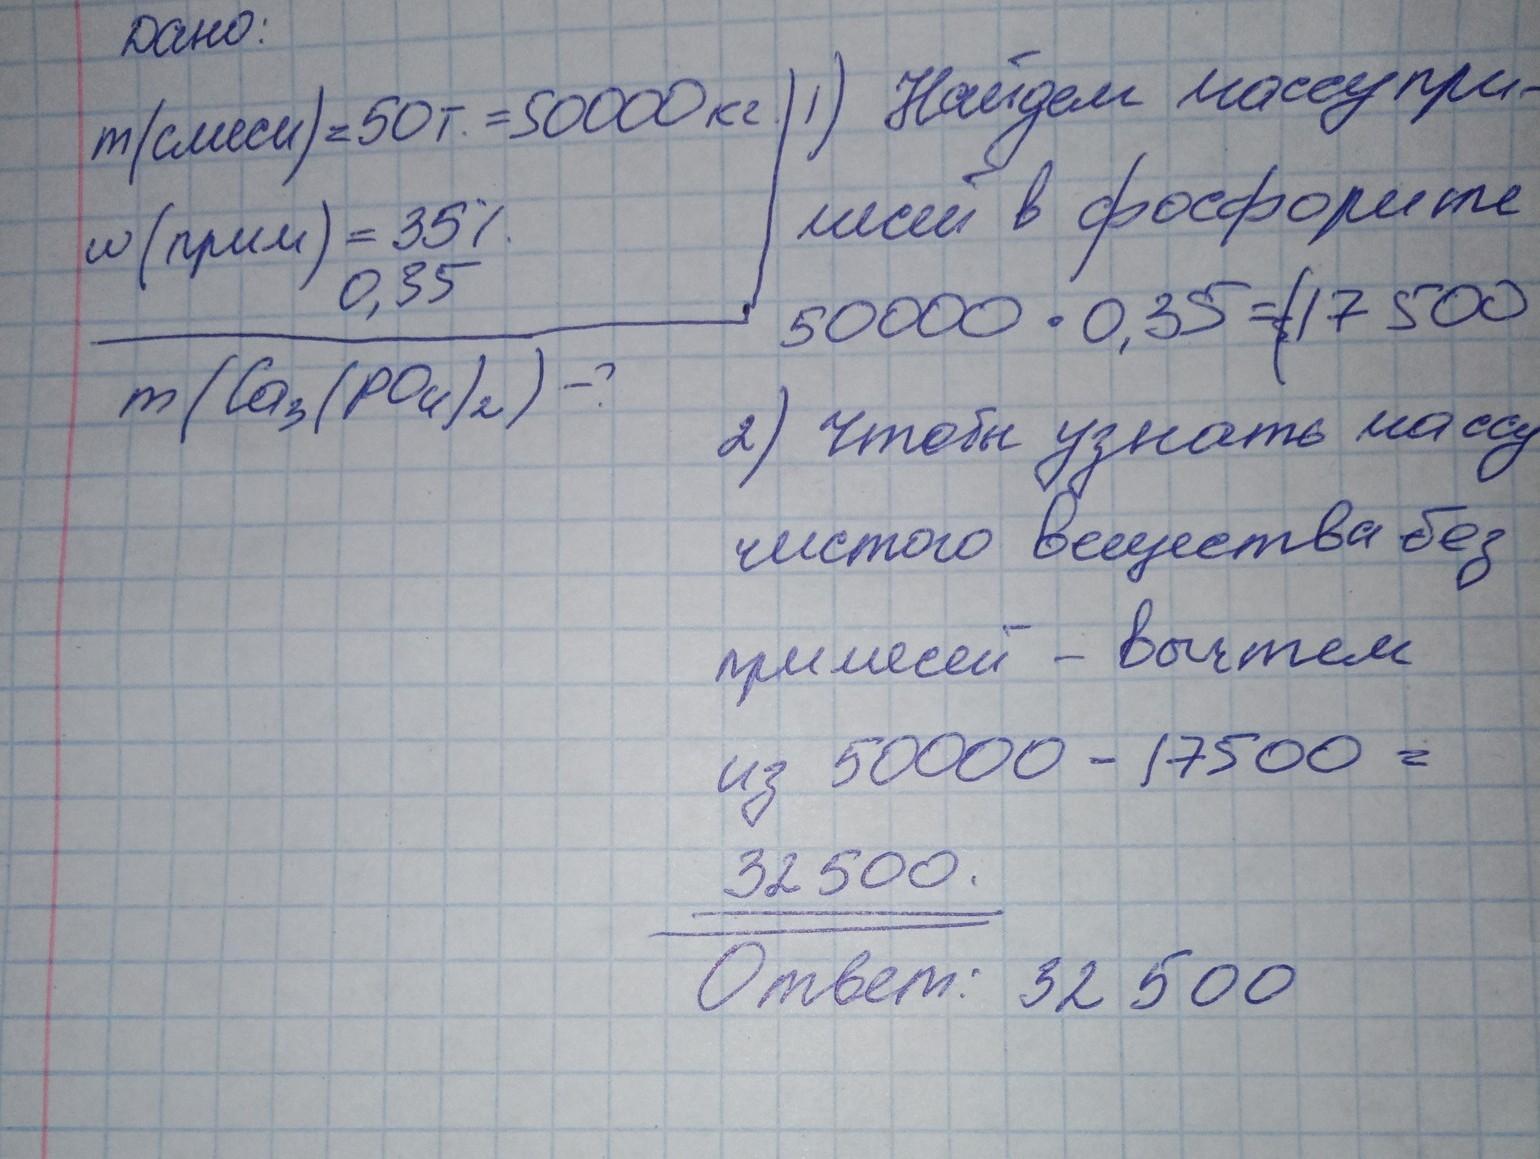 Дано:
m(смеси)=50т.=50000кг.
w(прим)=35%.
0,35
m(Ca₃(PO₄)₂)-?
1) Найдем массу при-
месей в фосфорите
50000·0,35=17500
2) Чтобы узнать массу
чистого вещества без
примесей - вычтем
из 50000-17500=
32500.
Ответ: 32 500